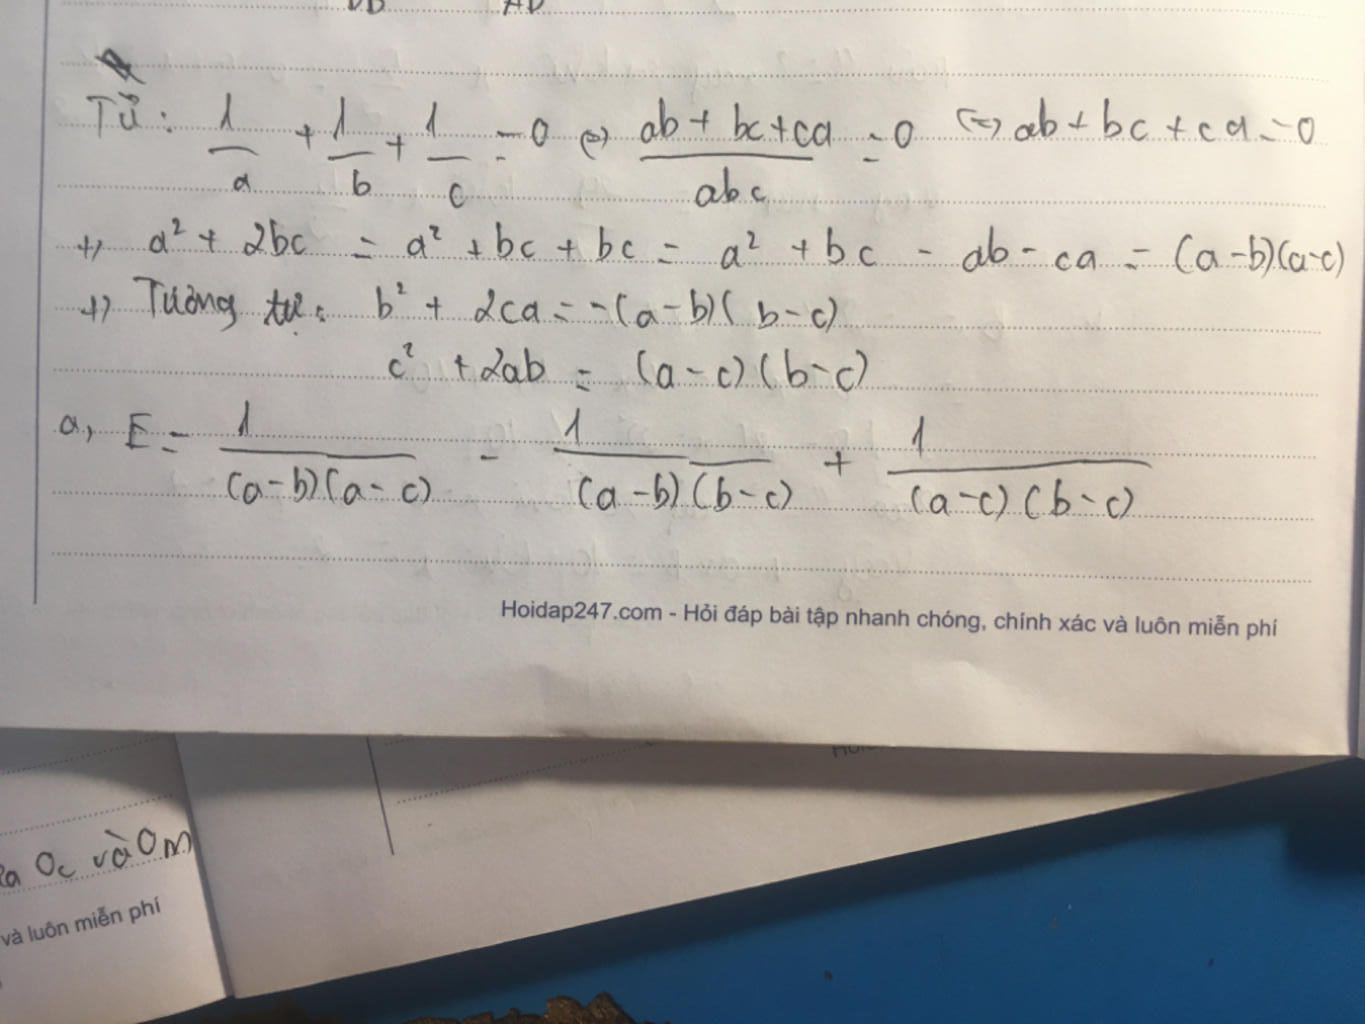 Từ: 1/a + 1/b + 1/c = 0 (=) (ab + bc + ca)/abc = 0 (=) ab + bc + ca = 0
+) a² + 2bc = a² + bc + bc = a² + bc - ab - ca = (a-b)(a-c)
+) Tương tự: b² + 2ca = -(a-b)(b-c)
c² + 2ab = (a-c)(b-c)
a, E = 1/((a-b)(a-c)) - 1/((a-b)(b-c)) + 1/((a-c)(b-c))
Hoidap247.com - Hỏi đáp bài tập nhanh chóng, chính xác và luôn miễn phí
Oc và Om
và luôn miễn phí